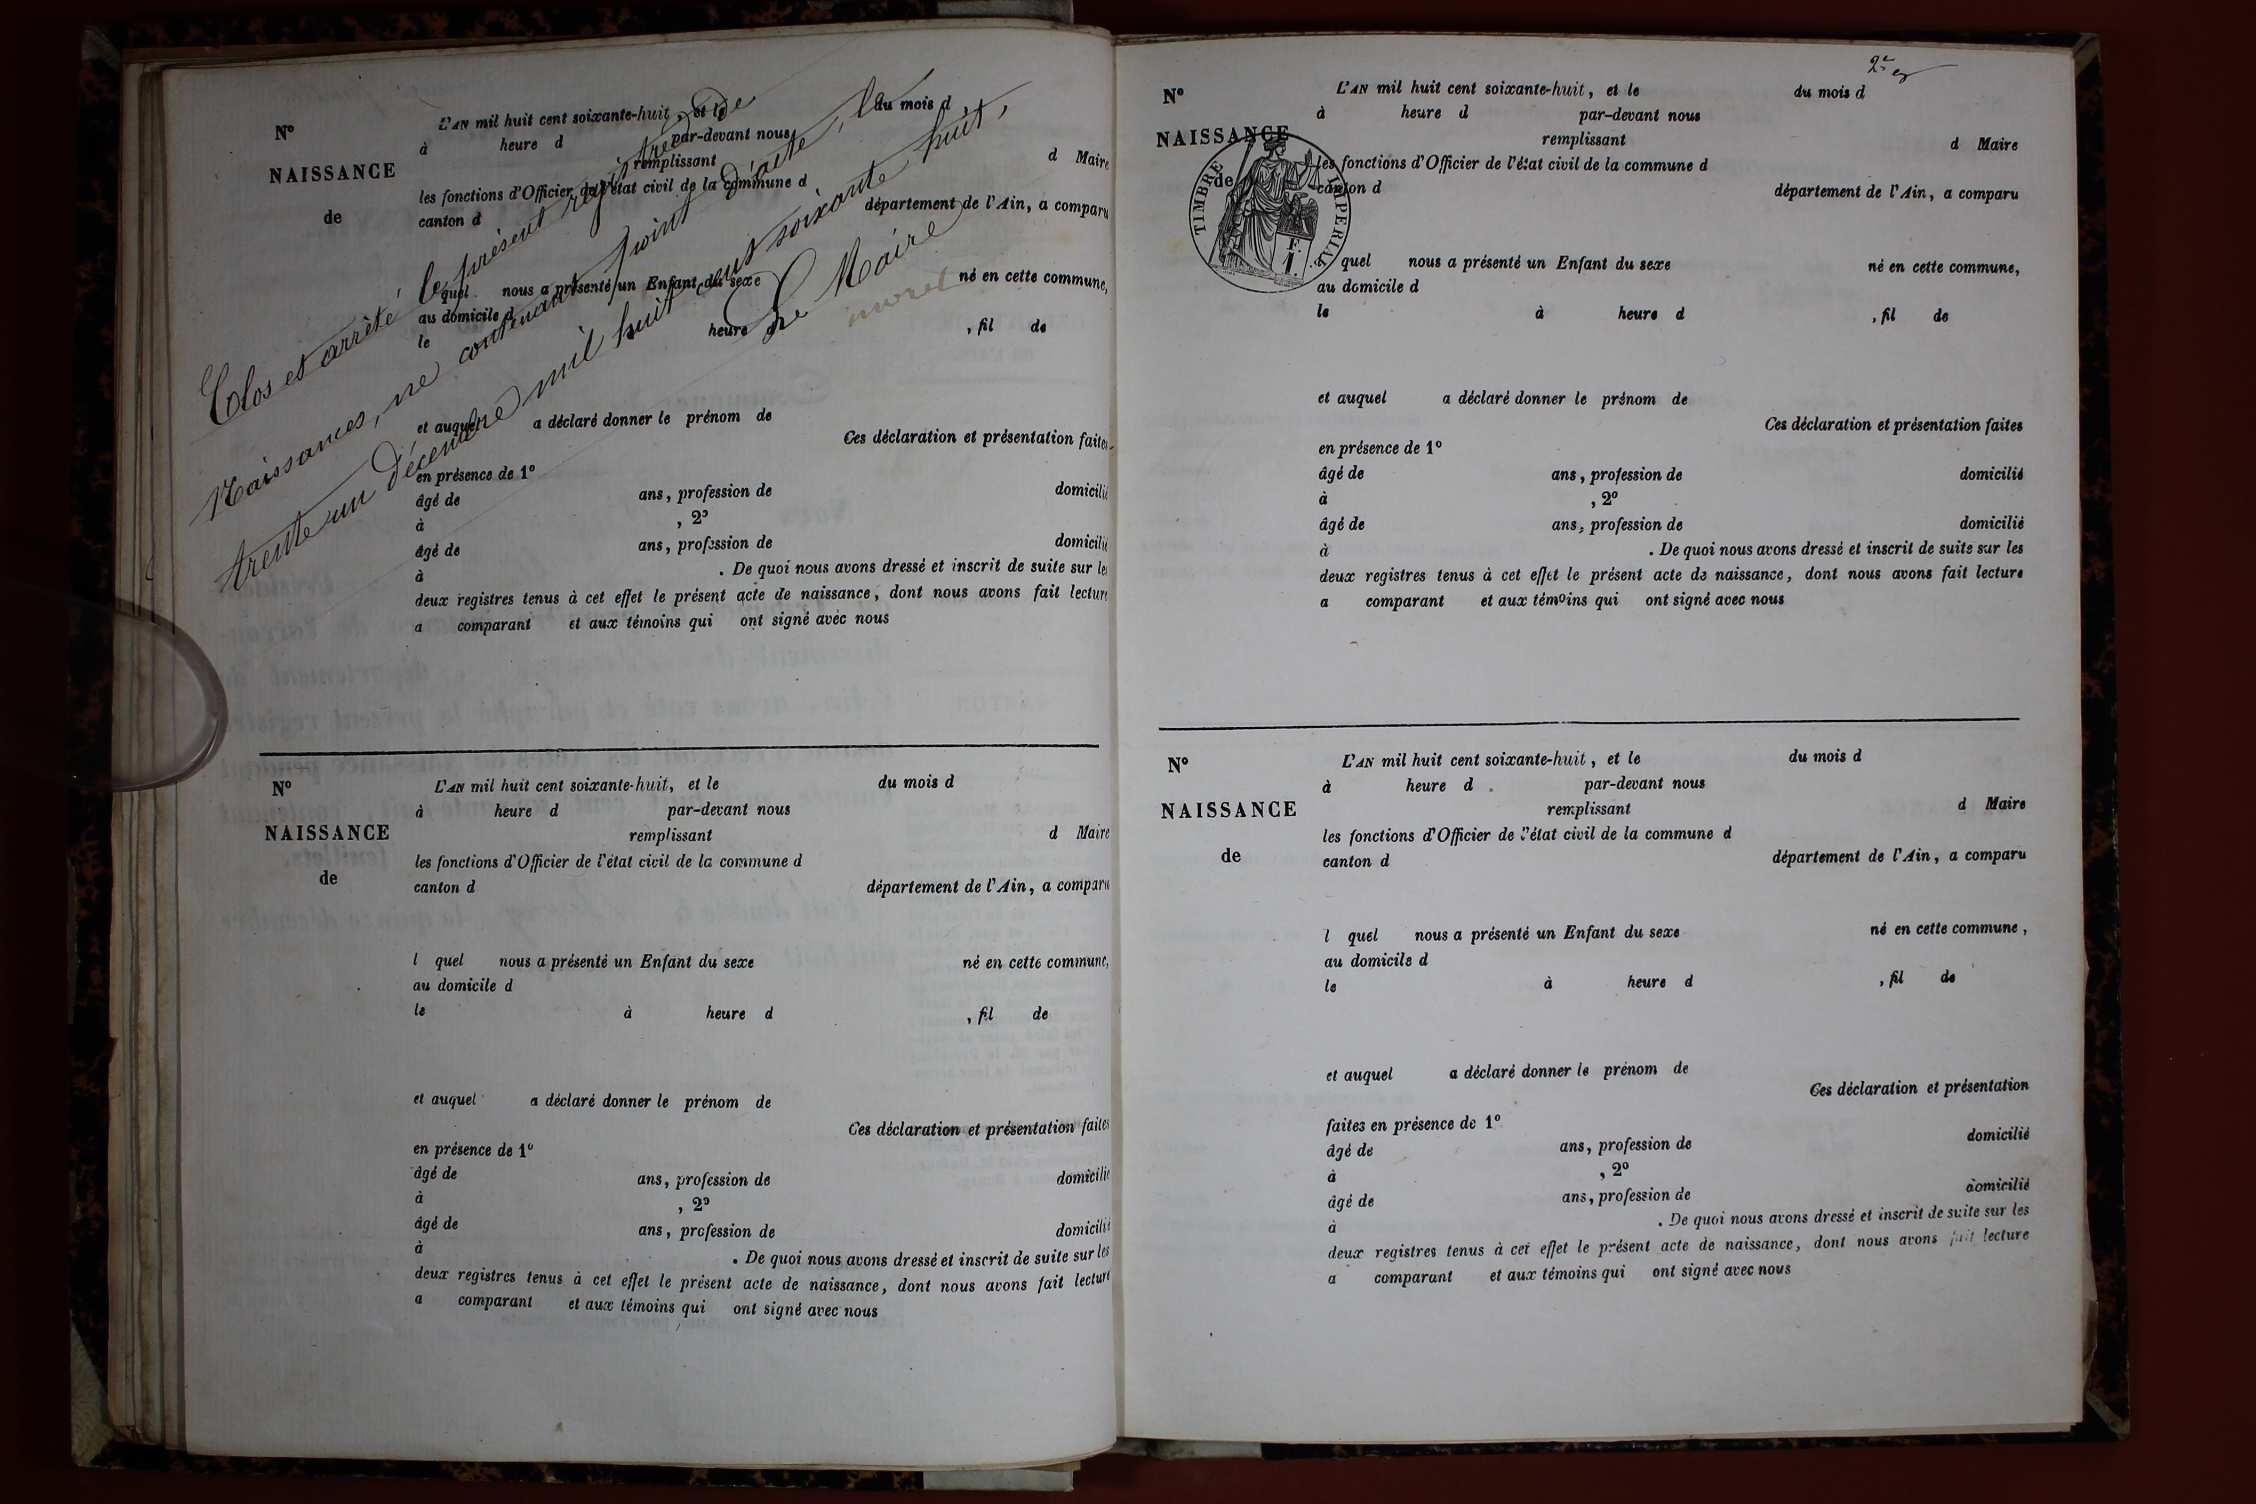 Clos et arrêté le présent registre de
Naissances, ne contenant point d'acte, le
trente un Décembre mil huit cent soixante huit,
Le Maire
morel
N° L'AN mil huit cent soixante-huit, et le du mois d
à heure d par-devant nous
NAISSANCE remplissant d Maire
les fonctions d'Officier de l'état civil de la commune d
de canton d département de l'Ain, a comparu
l quel nous a présenté un Enfant du sexe né en cette commune,
au domicile d
le heure d , fil de
et auquel a déclaré donner le prénom de
Ces déclaration et présentation faites
en présence de 1°
âgé de ans, profession de domicilié
à , 2°
âgé de ans, profession de domicilié
à . De quoi nous avons dressé et inscrit de suite sur les
deux registres tenus à cet effet le présent acte de naissance, dont nous avons fait lecture
a comparant et aux témoins qui ont signé avec nous
N° L'AN mil huit cent soixante-huit, et le du mois d
à heure d par-devant nous
NAISSANCE remplissant d Maire
les fonctions d'Officier de l'état civil de la commune d
de canton d département de l'Ain, a comparu
l quel nous a présenté un Enfant du sexe né en cette commune,
au domicile d
le à heure d , fil de
et auquel a déclaré donner le prénom de
Ces déclaration et présentation faites
en présence de 1°
âgé de ans, profession de domicilié
à , 2°
âgé de ans, profession de domicilié
à . De quoi nous avons dressé et inscrit de suite sur les
deux registres tenus à cet effet le présent acte de naissance, dont nous avons fait lecture
a comparant et aux témoins qui ont signé avec nous
N° L'AN mil huit cent soixante-huit, et le du mois d
à heure d par-devant nous
NAISSANCE remplissant d Maire
les fonctions d'Officier de l'état civil de la commune d
de canton d département de l'Ain, a comparu
TIMBRE IMPERIAL
F. 1.
quel nous a présenté un Enfant du sexe né en cette commune,
au domicile d
le à heure d , fil de
et auquel a déclaré donner le prénom de
Ces déclaration et présentation faites
en présence de 1°
âgé de ans, profession de domicilié
à , 2°
âgé de ans, profession de domicilié
à . De quoi nous avons dressé et inscrit de suite sur les
deux registres tenus à cet effet le présent acte de naissance, dont nous avons fait lecture
a comparant et aux témoins qui ont signé avec nous
N° L'AN mil huit cent soixante-huit, et le du mois d
à heure d par-devant nous
NAISSANCE remplissant d Maire
les fonctions d'Officier de l'état civil de la commune d
de canton d département de l'Ain, a comparu
l quel nous a présenté un Enfant du sexe né en cette commune,
au domicile d
le à heure d , fil de
et auquel a déclaré donner le prénom de
Ces déclaration et présentation
faites en présence de 1°
âgé de ans, profession de domicilié
à , 2°
âgé de ans, profession de domicilié
à . De quoi nous avons dressé et inscrit de suite sur les
deux registres tenus à cet effet le présent acte de naissance, dont nous avons fait lecture
a comparant et aux témoins qui ont signé avec nous